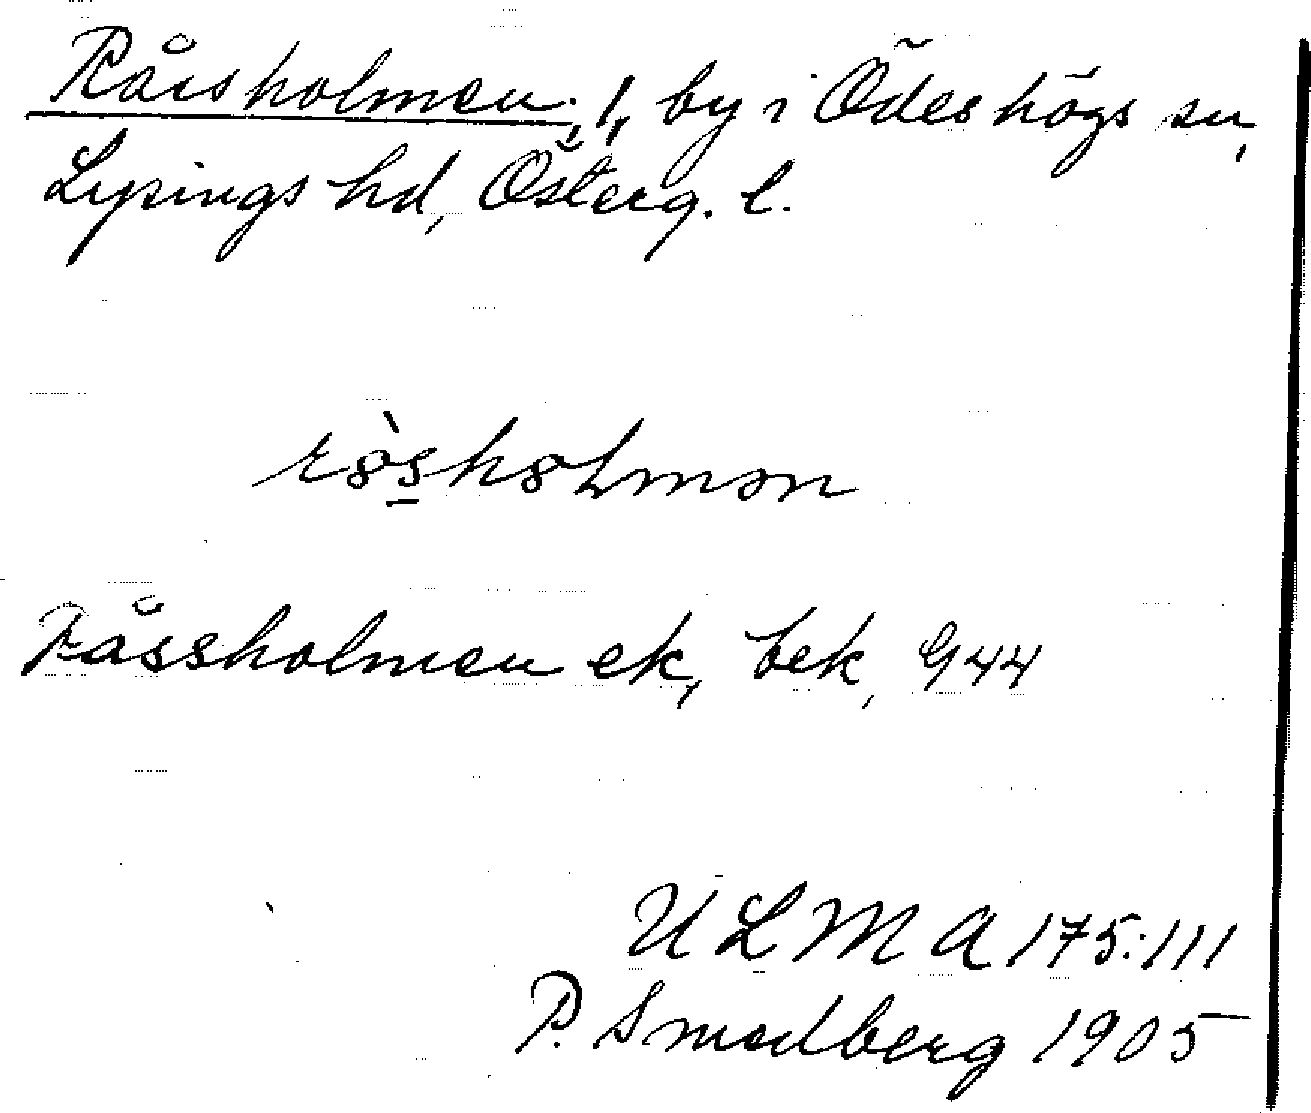 Råssholmen, 1, by i Ödeshögs sn,
Lysings hd, Österg. l.
Råssholmen ek, bek, G44
ULMA 175:111
P. Smedberg 1905